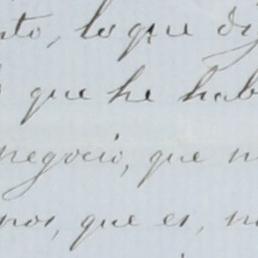 nto, lo que dij
que he hab
negocio, que n
nos, que es, n